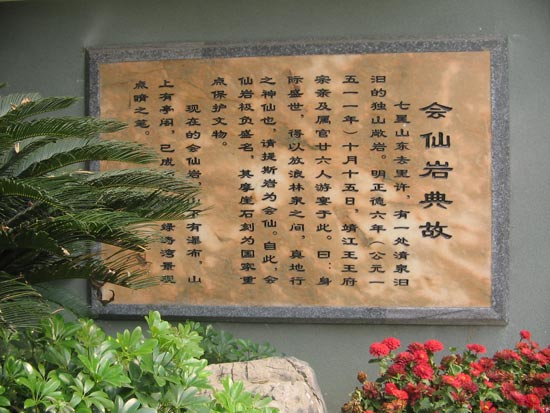 会仙岩典故
七星山东去里许，有一处清泉汩
汩的独山敞岩。明正德六年（公元一
五一一年）十月十五日，靖江王王府
宗亲及属官廿六人游宴于此。曰：身
际盛世，得以放浪林泉之间，真地行
之神仙也，请提斯岩为会仙。自此，会
仙岩极负盛名，其摩崖石刻为国家重
点保护文物。
现在的会仙岩，不有瀑布，山
上有亭阁，已成绿涛湾景观
点睛之笔。